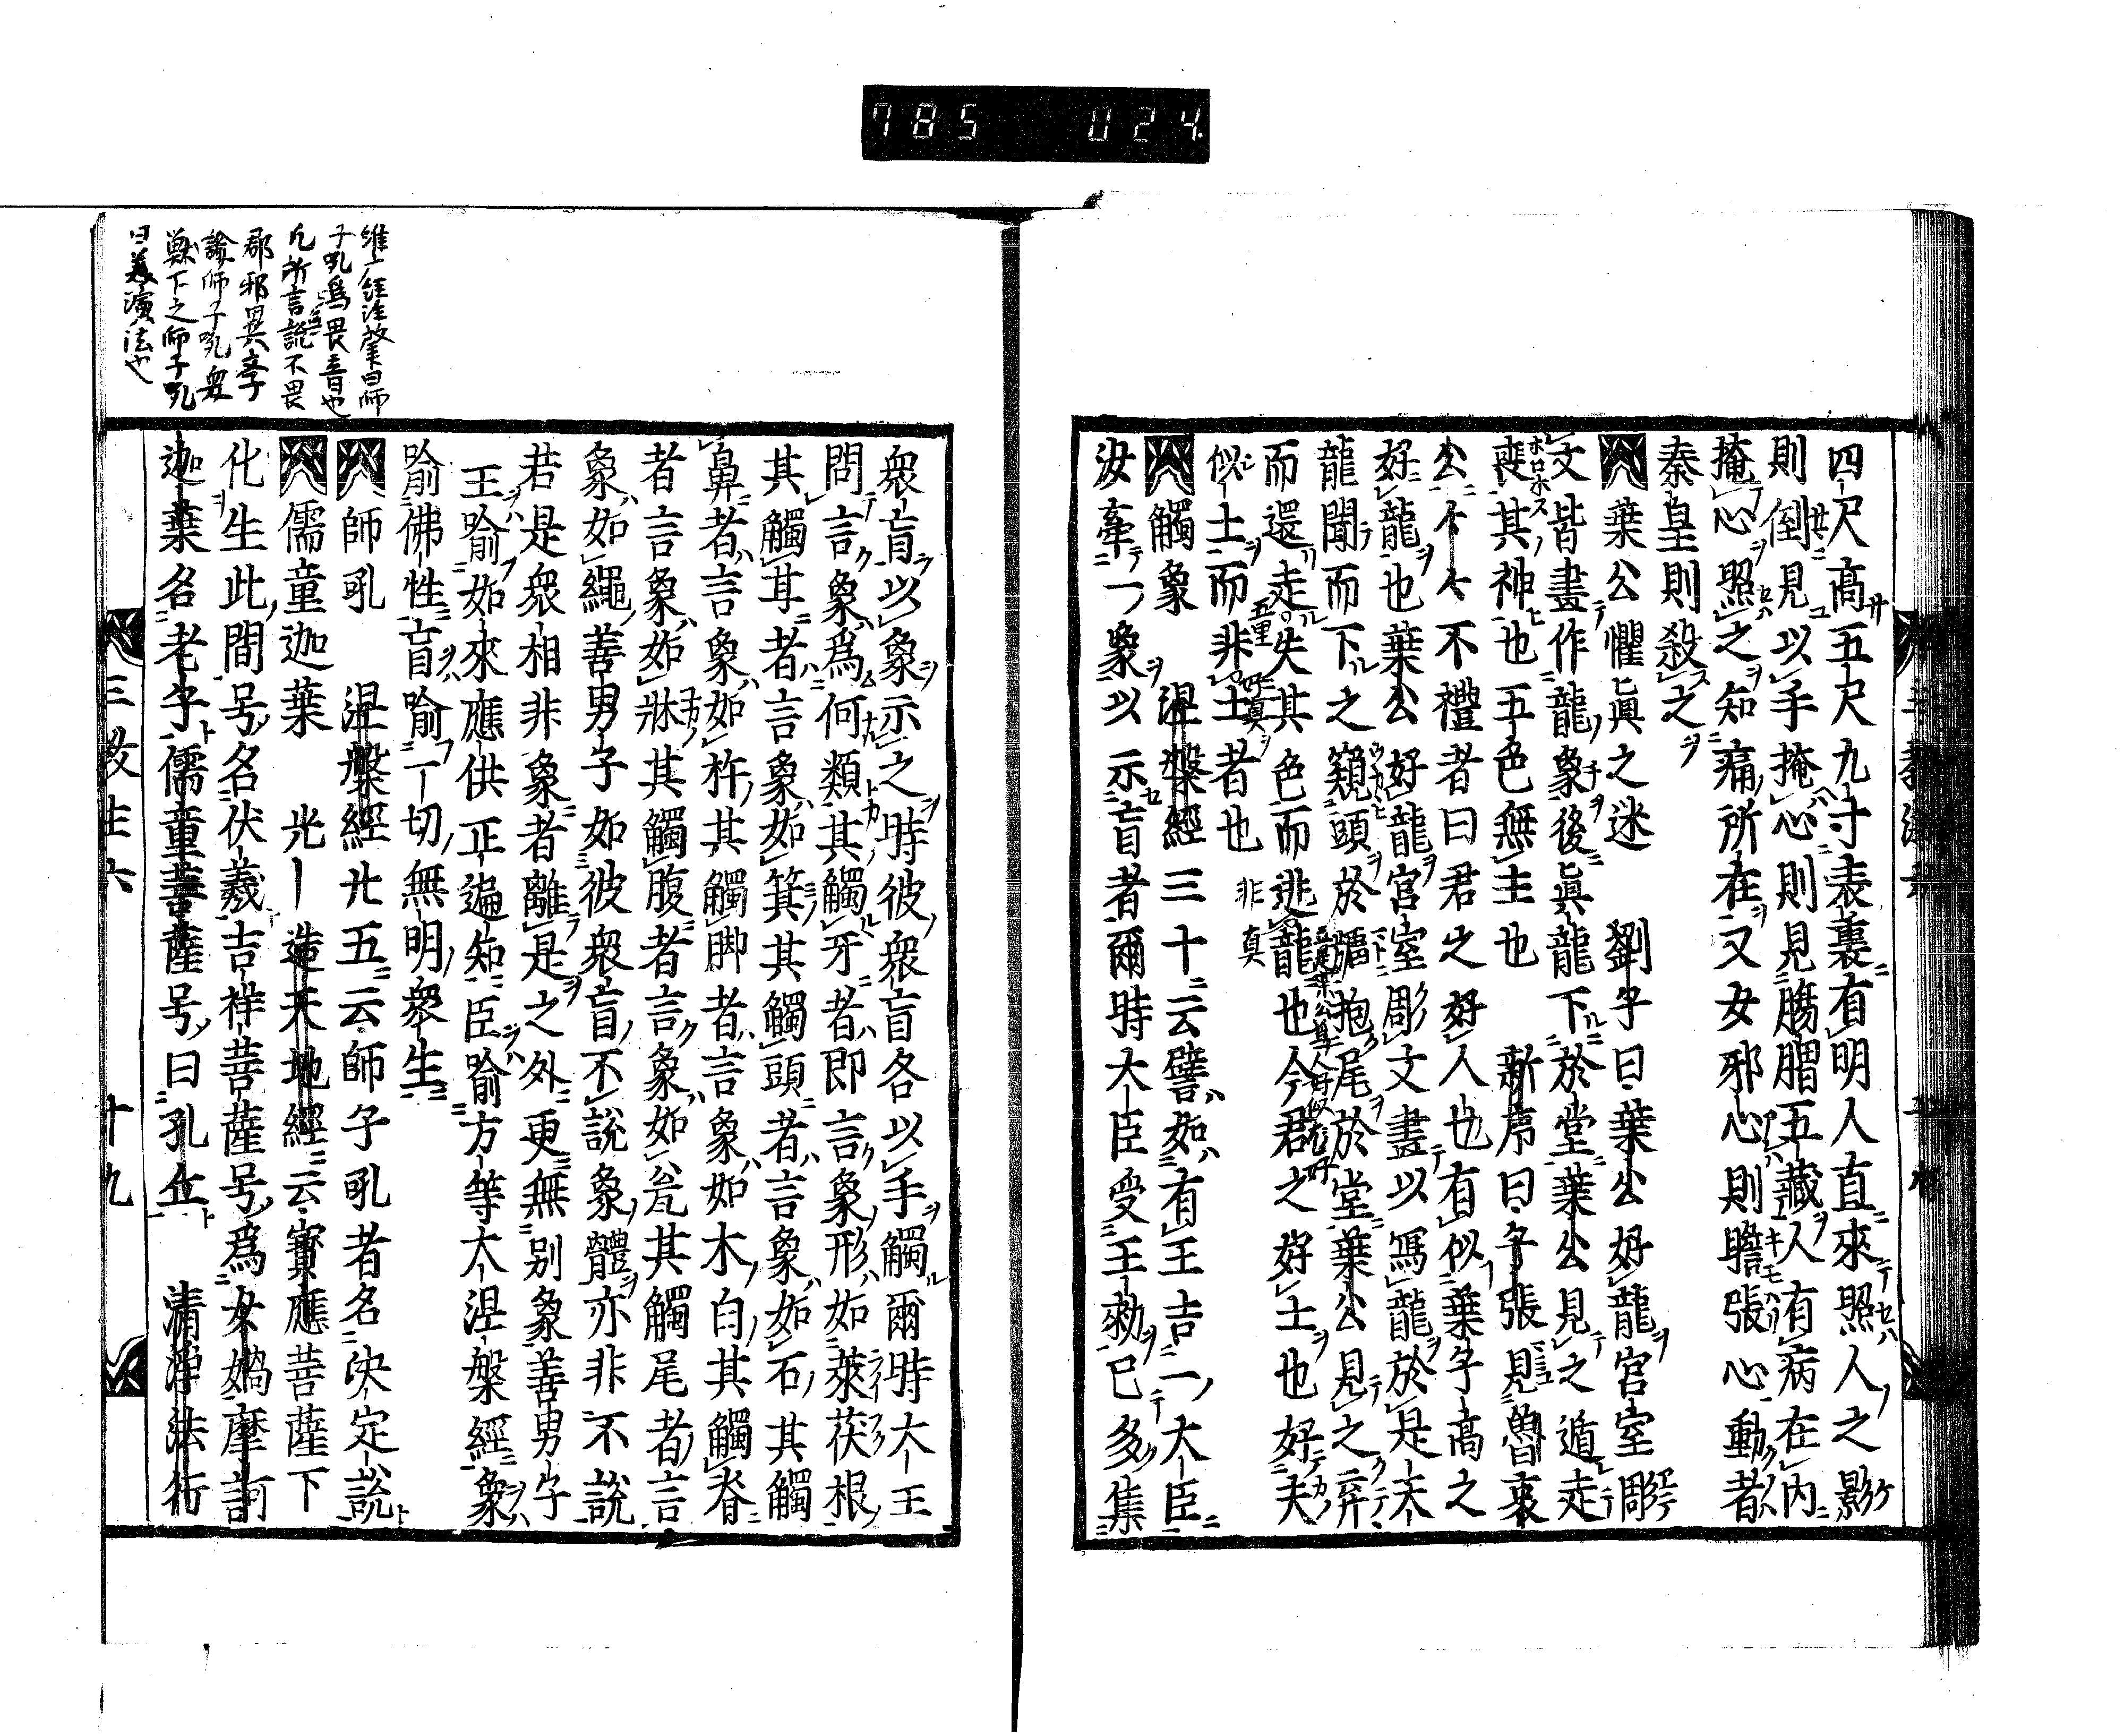 785 024
四尺高五尺九寸表裏有明人直來照人之影
則倒見以手掩心則見膓胃五藏人有病在内
掩心照之知痛所在又女邪心則膽張心動者
秦皇則殺之
葉公懼眞之迷 劉子曰葉公好龍宮室彫
文皆畫作龍象後眞龍下於堂葉公見之遁走
喪其神也五色無主也 新序曰子張見魯哀
公不禮者曰君之好人也有似葉子高之
好龍也葉公好龍宮室彫文畫以寫龍於是天
龍聞而下之窺頭於牖抱尾於堂葉公見之弃
而還走失其色而逃龍也今君之好土也好夫
似土而非土者也
觸象 涅槃經三十云譬如有王吉一大臣
汝牽一象以示盲者爾時大臣受王勑已多集
衆盲以象示之時彼衆盲各以手觸爾時大王
問言象爲何類其觸牙者即言象形如萊茯根
其觸耳者言象如箕其觸頭者言象如石其觸
鼻者言象如杵其觸脚者言象如木臼其觸脊
者言象如牀其觸腹者言象如瓮其觸尾者言
象如繩善男子如彼衆盲不説象體亦非不説
若是衆相非象者離是之外更無別象善男子
王喻如來應供正遍知臣喻方等大涅槃經象
喻佛性盲喻一切無明衆生
師吼 涅槃經廿五云師子吼者名决定説
儒童迦葉 光一造天地經云寳應菩薩下
化生此間号名伏羲吉祥菩薩号爲女媧摩訶
迦葉名老子儒童菩薩号曰孔丘 清浄法行
三教主六 十九
子吼爲畏音也
凡所言説不畏
群邪異學
諭師子吼衆
獸下之師子吼
曰美演法也